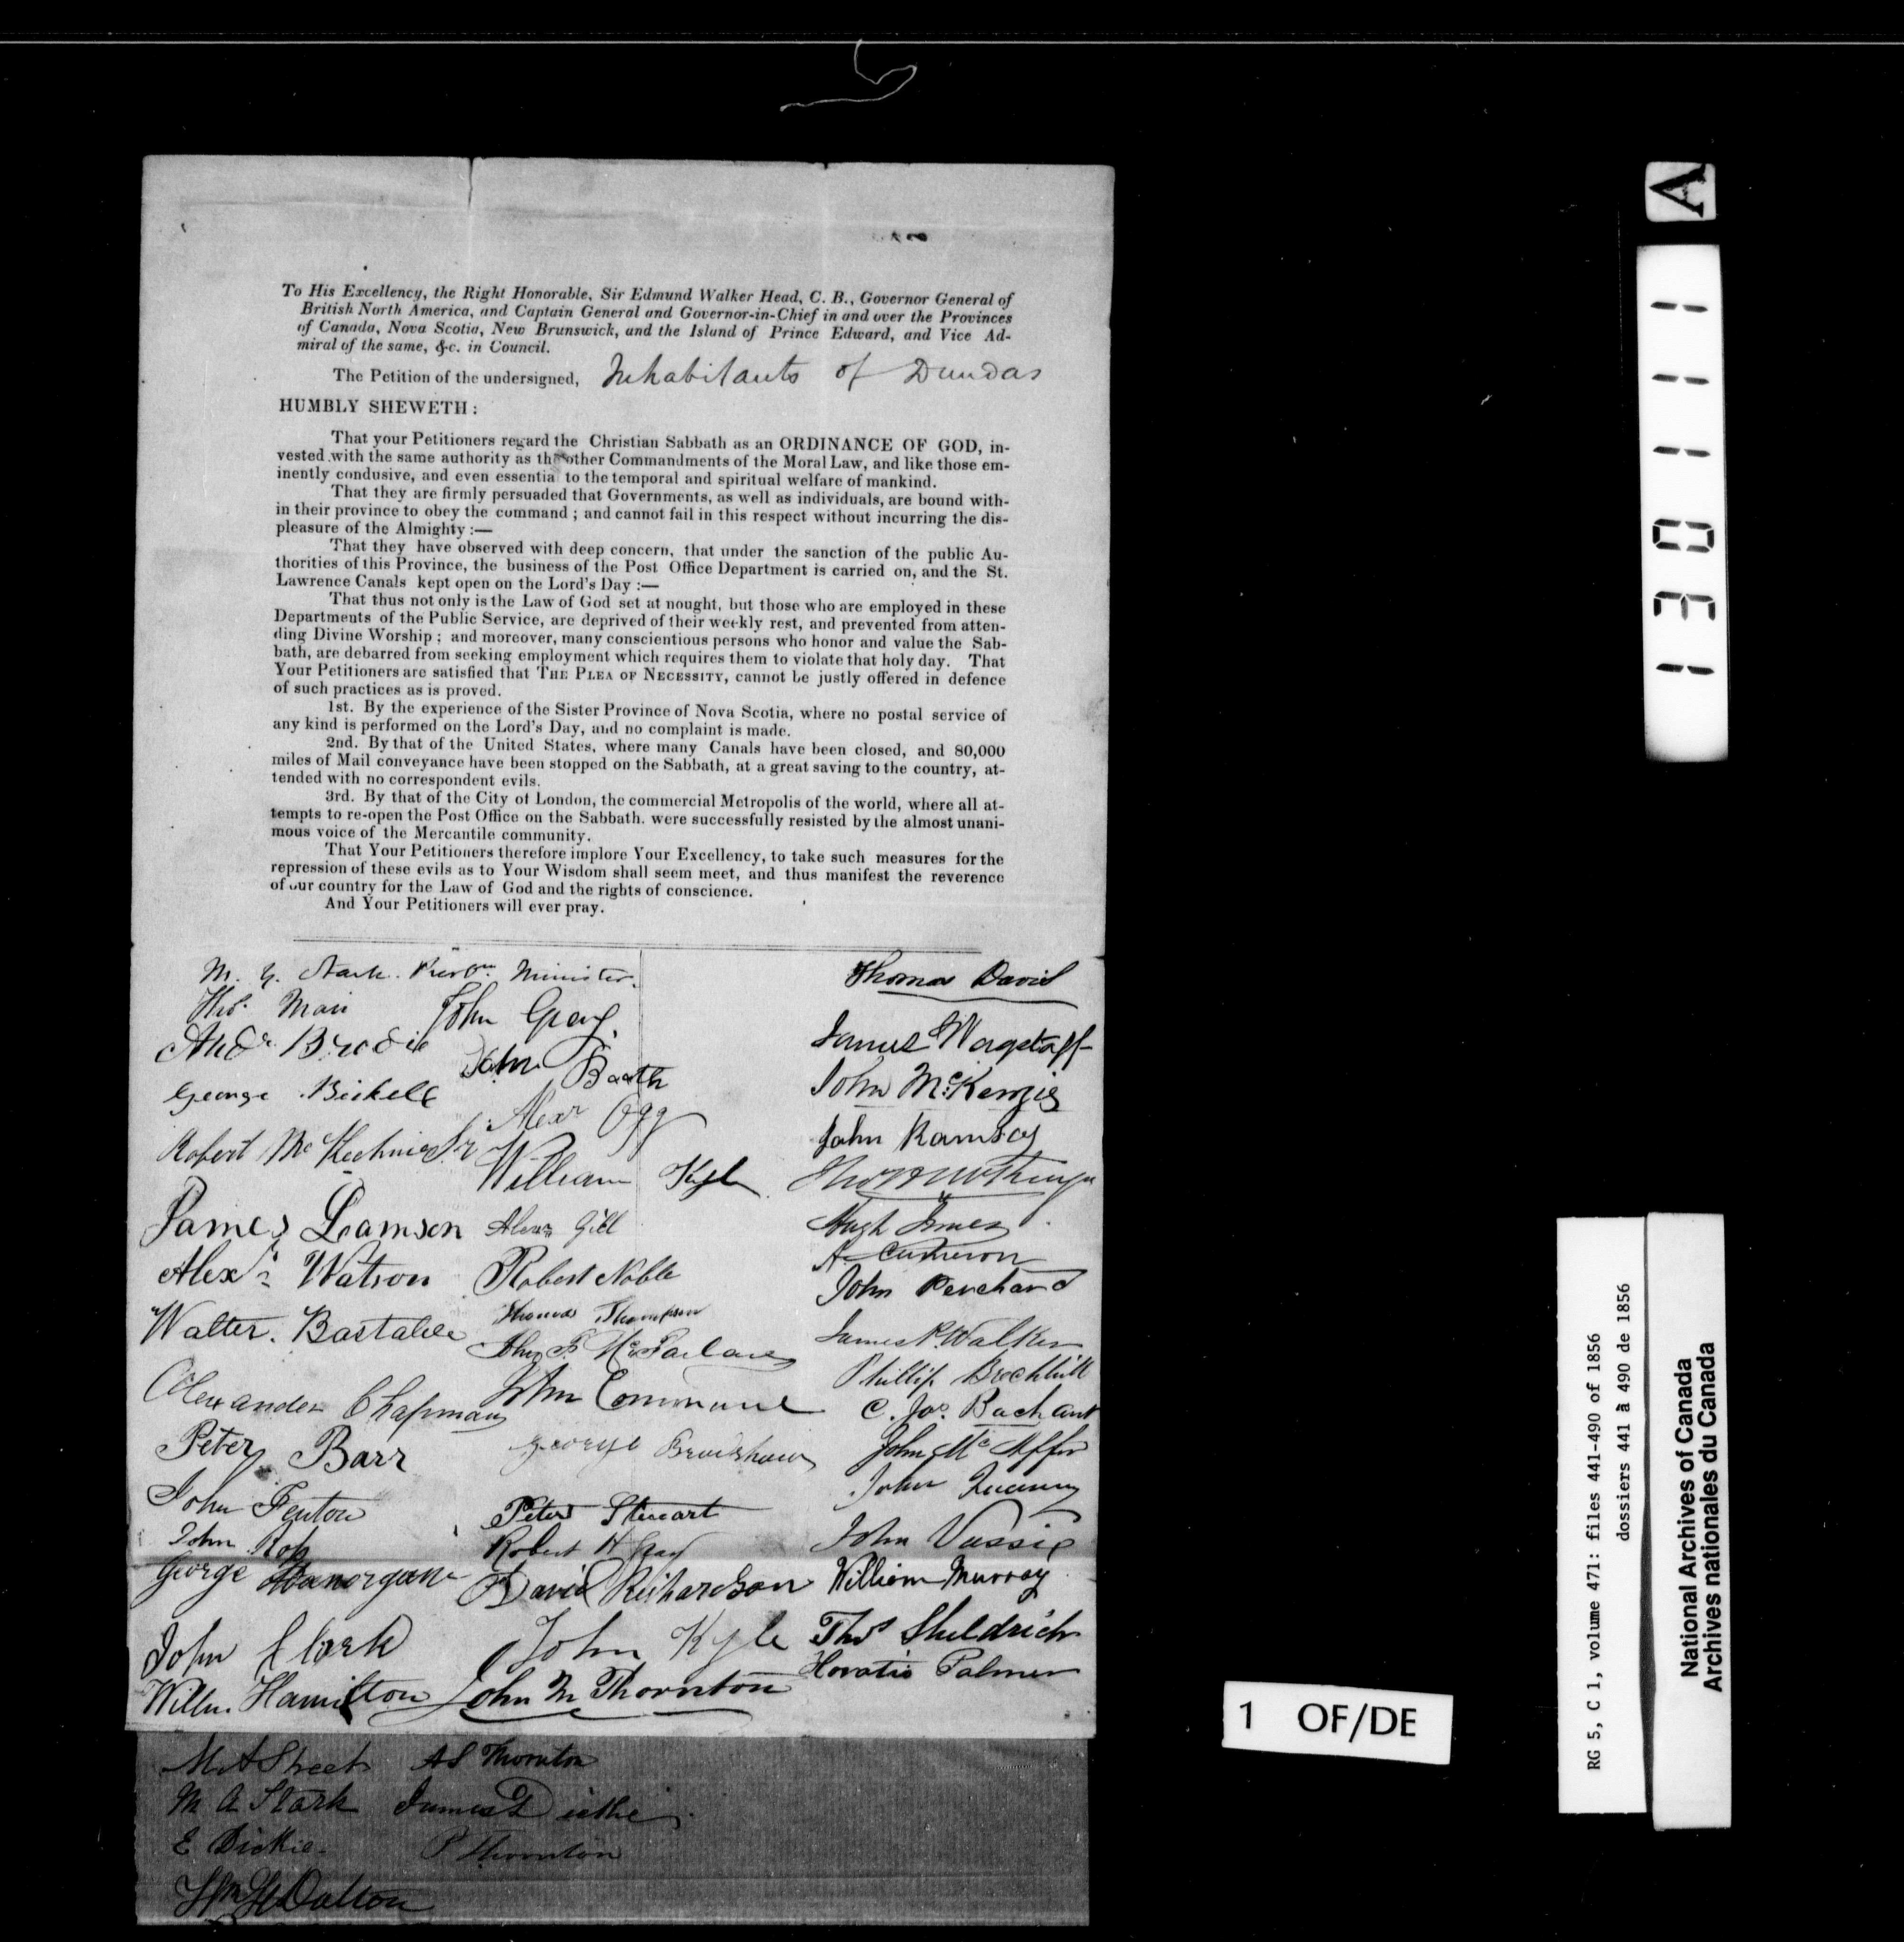 To His Excellency, the Right Honorable, Sir Edmund Walker Head, C. B., Governor General of
British North America, and Captain General and Governor-in-Chief in and over the Provinces
of Canada, Nova Scotia, New Brunswick, and the Island of Prince Edward, and Vice Ad-
miral of the same, &c. in Council.
The Petition of the undersigned, Inhabitants of Dundas
HUMBLY SHEWETH:
That your Petitioners regard the Christian Sabbath as an ORDINANCE OF GOD, in-
vested with the same authority as the other Commandments of the Moral Law, and like those em-
inently condusive, and even essential to the temporal and spiritual welfare of mankind.
That they are firmly persuaded that Governments, as well as individuals, are bound with-
in their province to obey the command; and cannot fail in this respect without incurring the dis-
pleasure of the Almighty:—
That they have observed with deep concern, that under the sanction of the public Au-
thorities of this Province, the business of the Post Office Department is carried on, and the St.
Lawrence Canals kept open on the Lord's Day:—
That thus not only is the Law of God set at nought, but those who are employed in these
Departments of the Public Service, are deprived of their weekly rest, and prevented from atten-
ding Divine Worship; and moreover, many conscientious persons who honor and value the Sab-
bath, are debarred from seeking employment which requires them to violate that holy day. That
Your Petitioners are satisfied that THE PLEA OF NECESSITY, cannot be justly offered in defence
of such practices as is proved.
1st. By the experience of the Sister Province of Nova Scotia, where no postal service of
any kind is performed on the Lord's Day, and no complaint is made.
2nd. By that of the United States, where many Canals have been closed, and 80,000
miles of Mail conveyance have been stopped on the Sabbath, at a great saving to the country, at-
tended with no correspondent evils.
3rd. By that of the City of London, the commercial Metropolis of the world, where all at-
tempts to re-open the Post Office on the Sabbath, were successfully resisted by the almost unani-
mous voice of the Mercantile community.
That Your Petitioners therefore implore Your Excellency, to take such measures for the
repression of these evils as to Your Wisdom shall seem meet, and thus manifest the reverence
of our country for the Law of God and the rights of conscience.
And Your Petitioners will ever pray.
M. Y. Stark Presbn Minister.
Thos. Mair
Andr Brodie
George Bickell
Robert McKechnie Sr
James Lamson
Alexr Watson
Walter Bastable
Alexander Chapman
Peter Barr
John Fenton
John
George
John Clark
Willm. Hamilton
John Gray
John Booth
Alexr Ogg
William Kyle
Alexr Gibb
Robert Noble
Thomas Thompson
McFarlane
John
George Bradshaw
Peter Stewart
Robert H Gray
David Richardson
John Kyle
John M Thornton
Thomas David
James Wagstaff
John McKenzie
John Ramsay
Hugh Innes
A Cameron
John Penchard
James R. Walker
Phillip Brechbill
C. Jos. Bachant
John Mc
John
John Vassie
William Murray
Thos Sheldrich
Horatio Palmer
M A Street
M A Stark
E Dickie
Wm H Dalton
A S Thornton
James Dickie
P Thornton
A
130111
1 OF/DE
RG 5, C 1, volume 471: files 441-490 of 1856
dossiers 441 à 490 de 1856
National Archives of Canada
Archives nationales du Canada